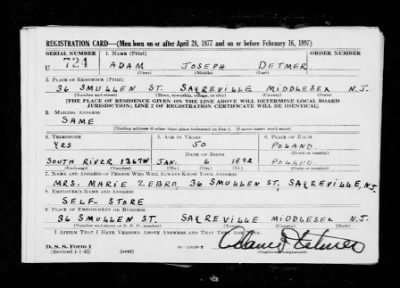 REGISTRATION CARD—(Men born on or after April 28, 1877 and on or before February 16, 1897)
SERIAL NUMBER 1. NAME (Print) ORDER NUMBER
U 724 ADAM JOSEPH DETMER
(First) (Middle) (Last)
2. PLACE OF RESIDENCE (Print)
36 SMULLEN ST. SAYREVILLE MIDDLESEX N.J.
(Number and street) (Town, township, village, or city) (County) (State)
[THE PLACE OF RESIDENCE GIVEN ON THE LINE ABOVE WILL DETERMINE LOCAL BOARD
JURISDICTION; LINE 2 OF REGISTRATION CERTIFICATE WILL BE IDENTICAL]
3. MAILING ADDRESS
SAME
(Mailing address if other than place indicated on line 2. If same insert word same)
4. TELEPHONE 5. AGE IN YEARS 6. PLACE OF BIRTH
YES 50 POLAND
DATE OF BIRTH
SOUTH RIVER 1367W JAN. 6 1892 POLAND
(Exchange) (Number) (Mo.) (Day) (Yr.) (State or country)
7. NAME AND ADDRESS OF PERSON WHO WILL ALWAYS KNOW YOUR ADDRESS
MRS. MARIE ZEBRO 36 SMULLEN ST, SAYREVILLE, N.J.
8. EMPLOYER'S NAME AND ADDRESS
SELF- STORE
9. PLACE OF EMPLOYMENT OR BUSINESS
36 SMULLEN ST. SAYREVILLE MIDDLESEX N.J.
(Number and street or R. F. D. number) (Town) (County) (State)
I AFFIRM THAT I HAVE VERIFIED ABOVE ANSWERS AND THAT THEY ARE TRUE.
D. S. S. Form 1 Adam J Detmer
(Revised 4-1-42) (Registrant's signature)